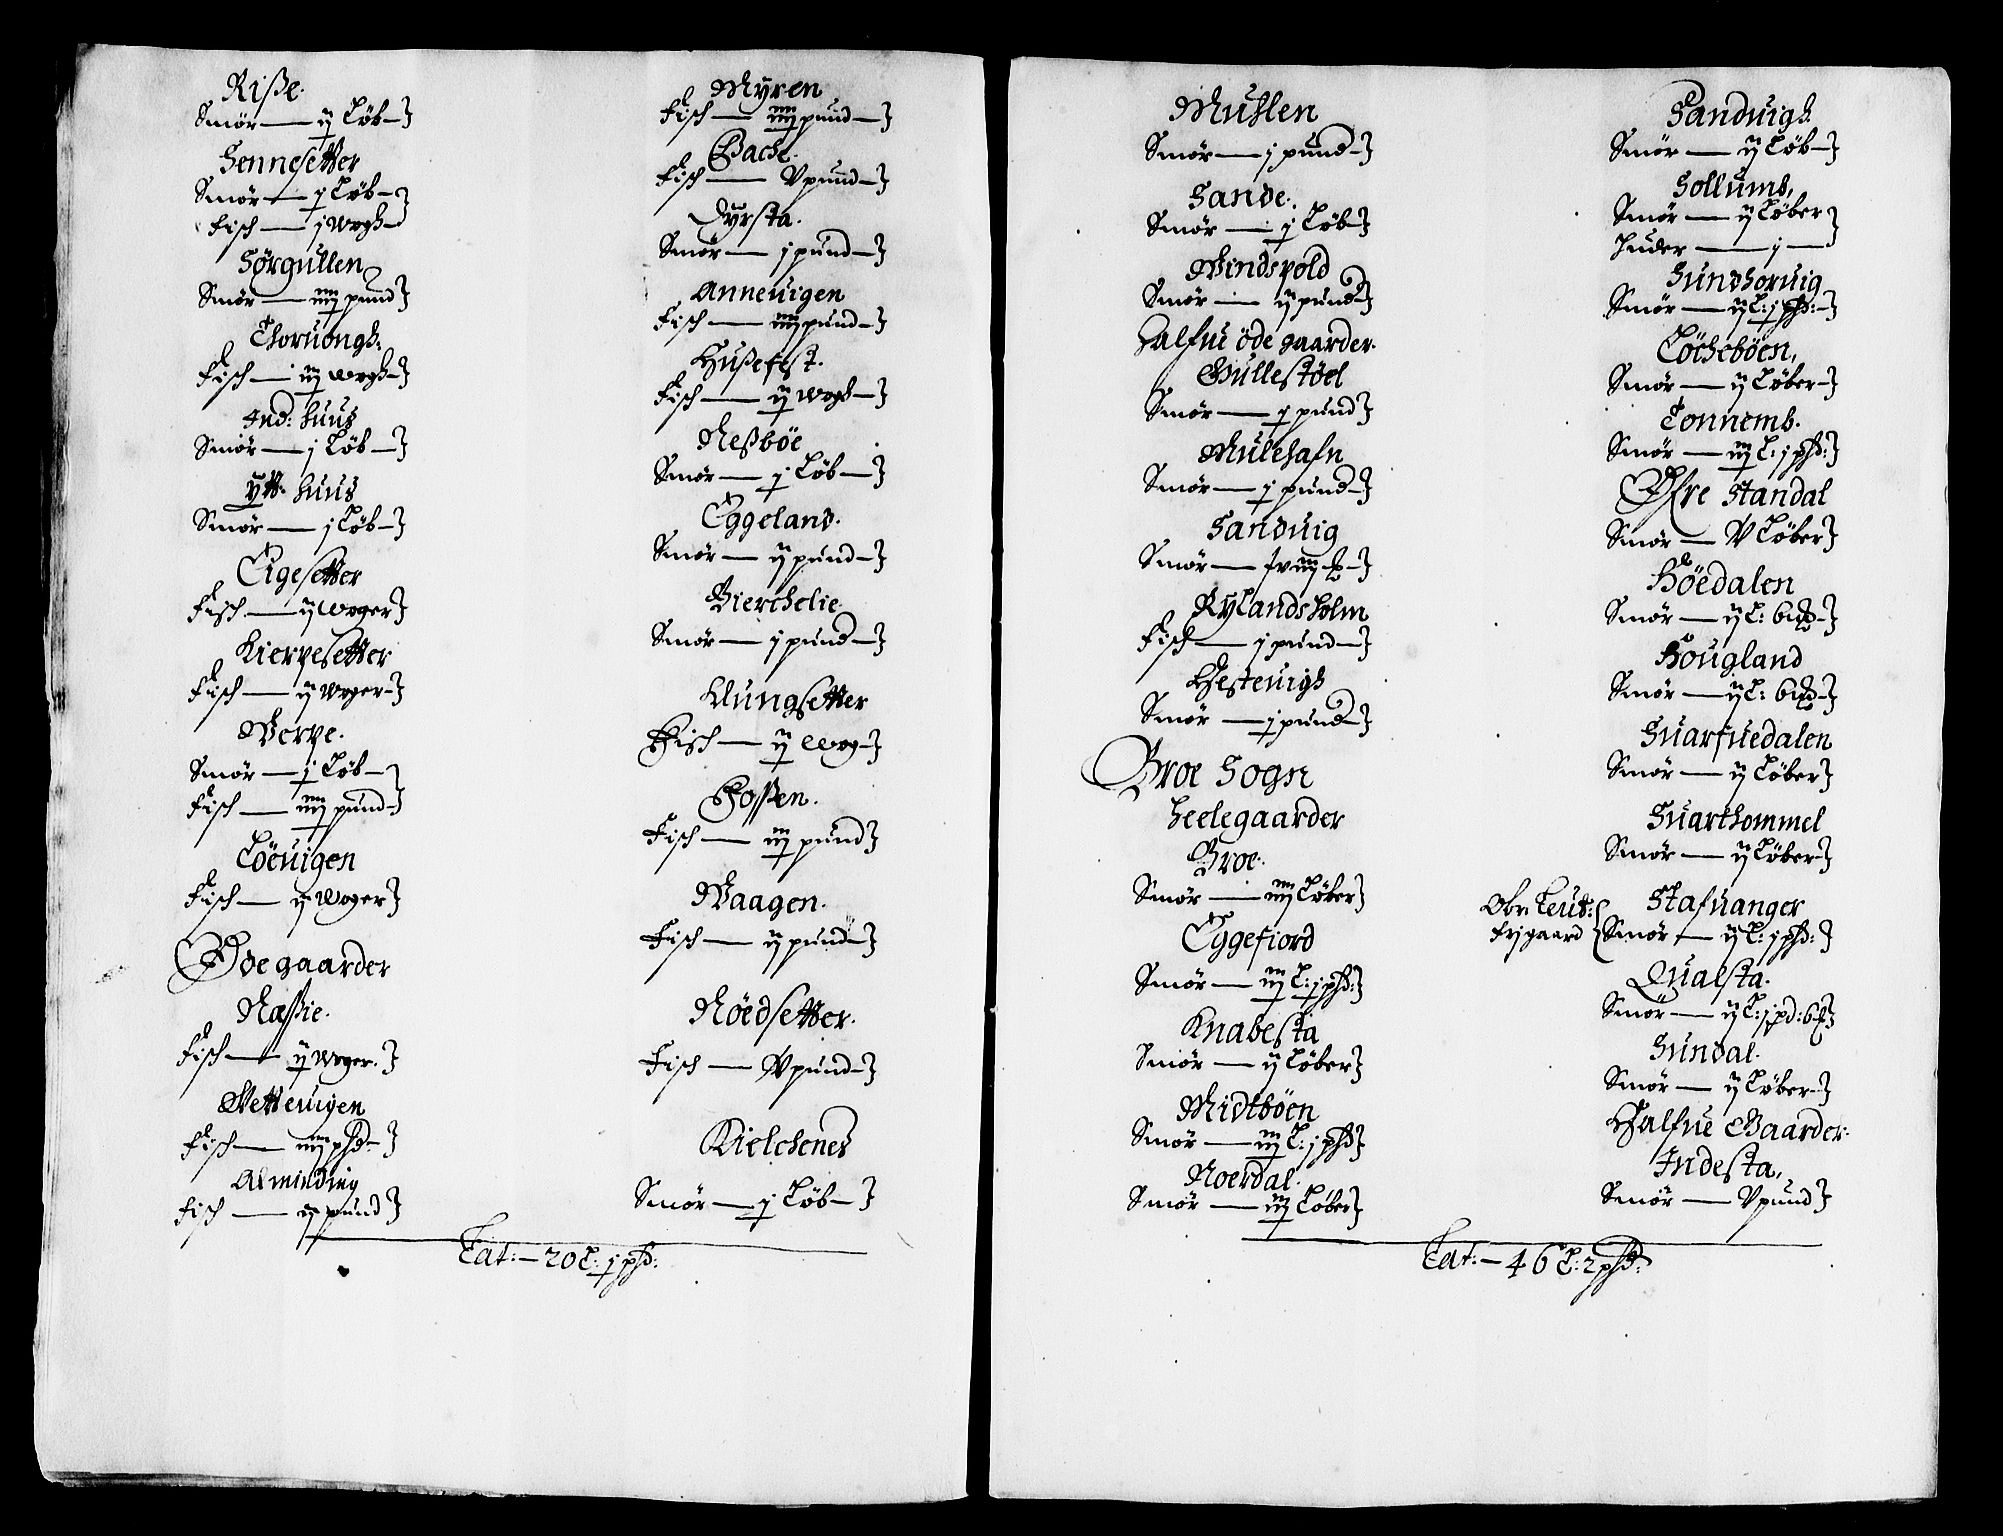 Riße.
Smør — ij Løb —
Sennesetter
Smør — j Løb —
Fisch — j Wogh
Sørgullen
Smør — iiij pund
Thoruongh:
Fisch — iij wogh —
Ind: huus
Smør — j Løb —
ytt. huus
Smør — j Løb —
Eigesetter
Fisch — ij woger
Kierpesetter
Fisch — ij Woger —
Verpe.
Smør — j Løb —
Fisch — iiij pund —
Löeuigen
Fisch — ij Woger
Öde gaarder
Næßie.
Fisch — ij Woger.
Vetteuigen
Fisch — iiij phd —
Alminding
Fisch — ij pund
Myren
Fisch — iiij pund —
Bache.
Fisch — V pund —
Dyrsta.
Smør — j pund —
Anneuigen
Fisch — iiij pund —
Hußefest.
Fisch — ij wogh —
Neßböe
Smør — j Løb —
Eggeland.
Smør — ij pund —
Bierchelie
Smør — j pund —
Kungsetter
Fisch — ij Wog —
Foßen.
Fisch — iij pund
Waagen.
Fisch — ij pund —
Nöedsetter.
Fisch — V pund —
Kielchenes
Smør — j Löb —
Lat: — 20 L: j phd:
Muhlen
Smør — j pund —
Sande.
Smør — j Löb —
Vindspold
Smør — ij pund —
Halfue öde gaarder.
Gullestöel
Smør — j pund
Mulehafn
Smør — j pund —
Sanduig
Smør —
Rylandsholm
Fisch — j pund —
Hesteuigh
Smør — j pund —
Broe Sogn
Heelegaarder
Broe.
Smør — iiij Löber
Eggefiord
Smør — iiij L: j phd:
Knabesta
Smør — ij Löber
Midtböen
Smør — iij L: j phd
Noerdal.
Smør — iij Löber
Sanduigh.
Smør — ij Löb —
Sollumb,
Smør — ij Löber
Huder — j —
Sundhoruig
Smør — ij L: j phd: —
Löcheböen,
Smør — ij Löber —
Tonnemb.
Smør — iij L: j phd:
Öfre Standal
Smør — V Löber
Höedalen
Smør — ij L:
Hougland
Smør — ij L:
Suarfuedalen
Smør — ij Löber
Suarthommel
Smør — ij Löber —
Obr. Leut:
frjgaard
Stafuanger
Smør — ij L: j phd:
Qualsta.
Smør — ij L: j pd:
Sundal.
Smør — ij Löber —
Halfue Gaarder.
Indesta,
Smør — V pund
Lat: — 46 L: 2 phd: